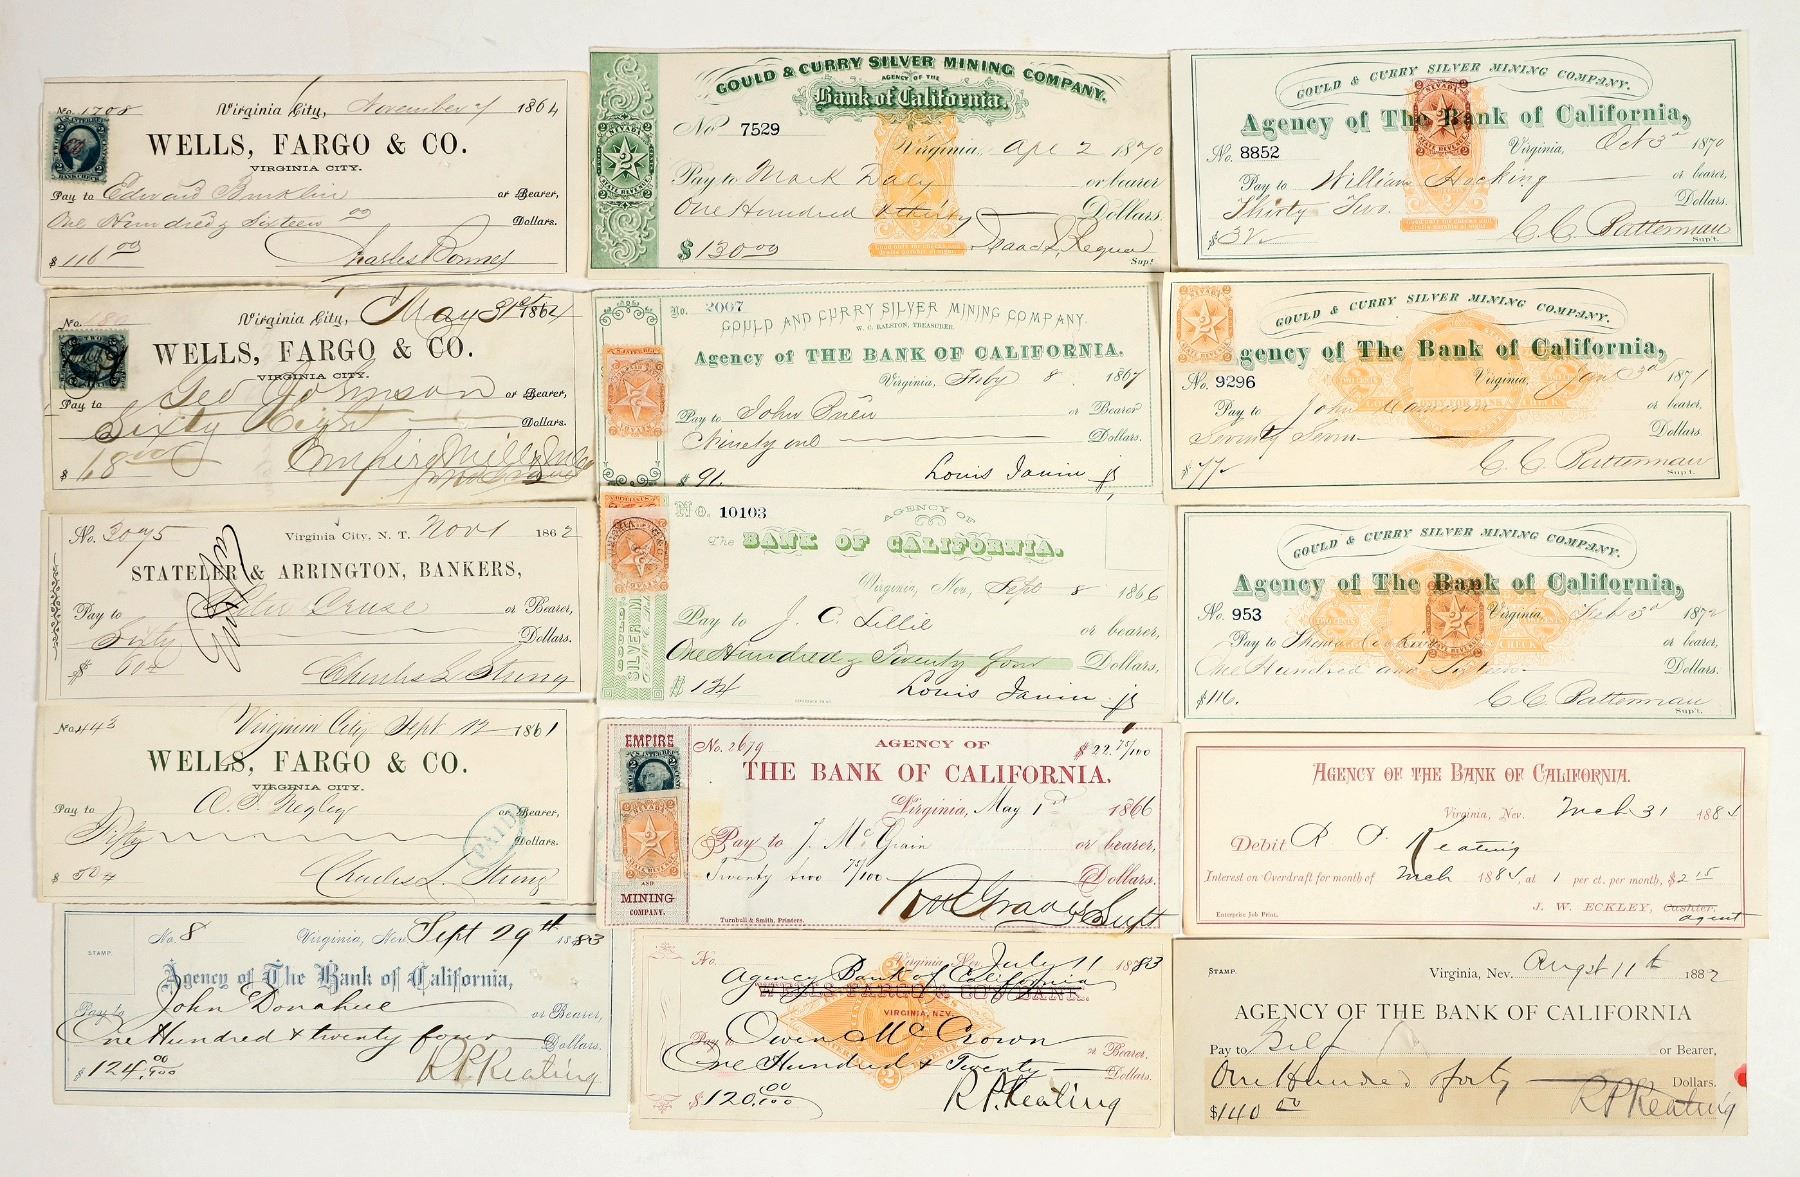 No. 1708 Virginia City, November 1864
WELLS, FARGO & CO.
VIRGINIA CITY.
Pay to Edward or Bearer,
One Hundred & Sixteen 00 Dollars.
$ 116.00 Charles Bonner
No. 180 Virginia City, May 31st 1864
WELLS, FARGO & CO.
VIRGINIA CITY.
Pay to Geo Johnson or Bearer,
Sixty Eight Dollars.
$ 68.00 Empire Mill & M Co
No. 3075 Virginia City, N. T. Nov 1 1862
STATELER & ARRINGTON, BANKERS,
Pay to Peter Cruse or Bearer,
Sixty Dollars.
$ 60 Charles L. Strong
No. 443 Virginia City Sept 12 1861
WELLS, FARGO & CO.
VIRGINIA CITY.
Pay to or Bearer,
Fifty Dollars.
PAID
$ 50 Charles L. Strong
STAMP
No. 8 Virginia, Nev. Sept 29th 1883
Agency of The Bank of California,
Pay to John Donahue or Bearer,
One Hundred & twenty four Dollars.
$ 124.00/100 R P Keating
GOULD & CURRY SILVER MINING COMPANY.
AGENCY OF THE
Bank of California.
No 7529
NEVADA
2
STATE REVENUE
Virginia, Apr 2 1870
Pay to Mark Daly or bearer
One Hundred & thirty Dollars.
$ 130.00 Isaac L. Requa
Supt
No. 2067
GOULD AND CURRY SILVER MINING COMPANY.
W. C. RALSTON, TREASURER.
Agency of THE BANK OF CALIFORNIA.
Virginia, Feby 8 1867
Pay to John or Bearer
Ninety one Dollars.
$ 91. Louis Janin jr
No. 10103
AGENCY OF
The BANK OF CALIFORNIA.
Virginia, Nev, Sept 8 1866
Pay to J. C. Lillie or bearer,
One Hundred & Twenty four Dollars,
$ 124 Louis Janin jr
EMPIRE
No. 2679 AGENCY OF $ 22.75/100
THE BANK OF CALIFORNIA.
Virginia, May 1st 1866
Pay to J. McGrain or bearer,
Twenty two 75/100 Dollars.
AND
MINING
COMPANY.
R M Graves Supt
Turnbull & Smith, Printers.
No. Virginia Nev July 11 1883
Agency Bank of California
WELLS, FARGO & CO'S BANK.
VIRGINIA, NEV.
Pay to Owen McCrown or Bearer.
One Hundred & Twenty Dollars.
$ 120.00/100 R P Keating
GOULD & CURRY SILVER MINING COMPANY.
Agency of The Bank of California,
No. 8852 Virginia, Oct 3d 1870
Pay to William Hocking or bearer,
Thirty Two Dollars.
$ 32 C. C. Batterman
Sup't.
GOULD & CURRY SILVER MINING COMPANY.
Agency of The Bank of California,
No. 9296 Virginia, Jany 3d 1871
Pay to John or bearer,
Seventy Seven Dollars.
$ 77 C. C. Batterman
Sup't.
GOULD & CURRY SILVER MINING COMPANY.
Agency of The Bank of California,
No. 953 Virginia Feb 3d 1872
Pay to Thomas or bearer,
One Hundred and Sixteen Dollars.
$ 116. C. C. Batterman
Sup't.
AGENCY OF THE BANK OF CALIFORNIA.
Virginia, Nev. Mch 31 1884
Debit R. P. Keating
Interest on Overdraft for month of Mch 1884, at 1 per ct. per month, $ 2 15
J. W. ECKLEY, Cashier.
agent
Enterprise Job Print.
STAMP. Virginia, Nev. Augst 11th 1882
AGENCY OF THE BANK OF CALIFORNIA
Pay to Self or Bearer,
One Hundred & forty Dollars.
$ 140 00 R P Keating